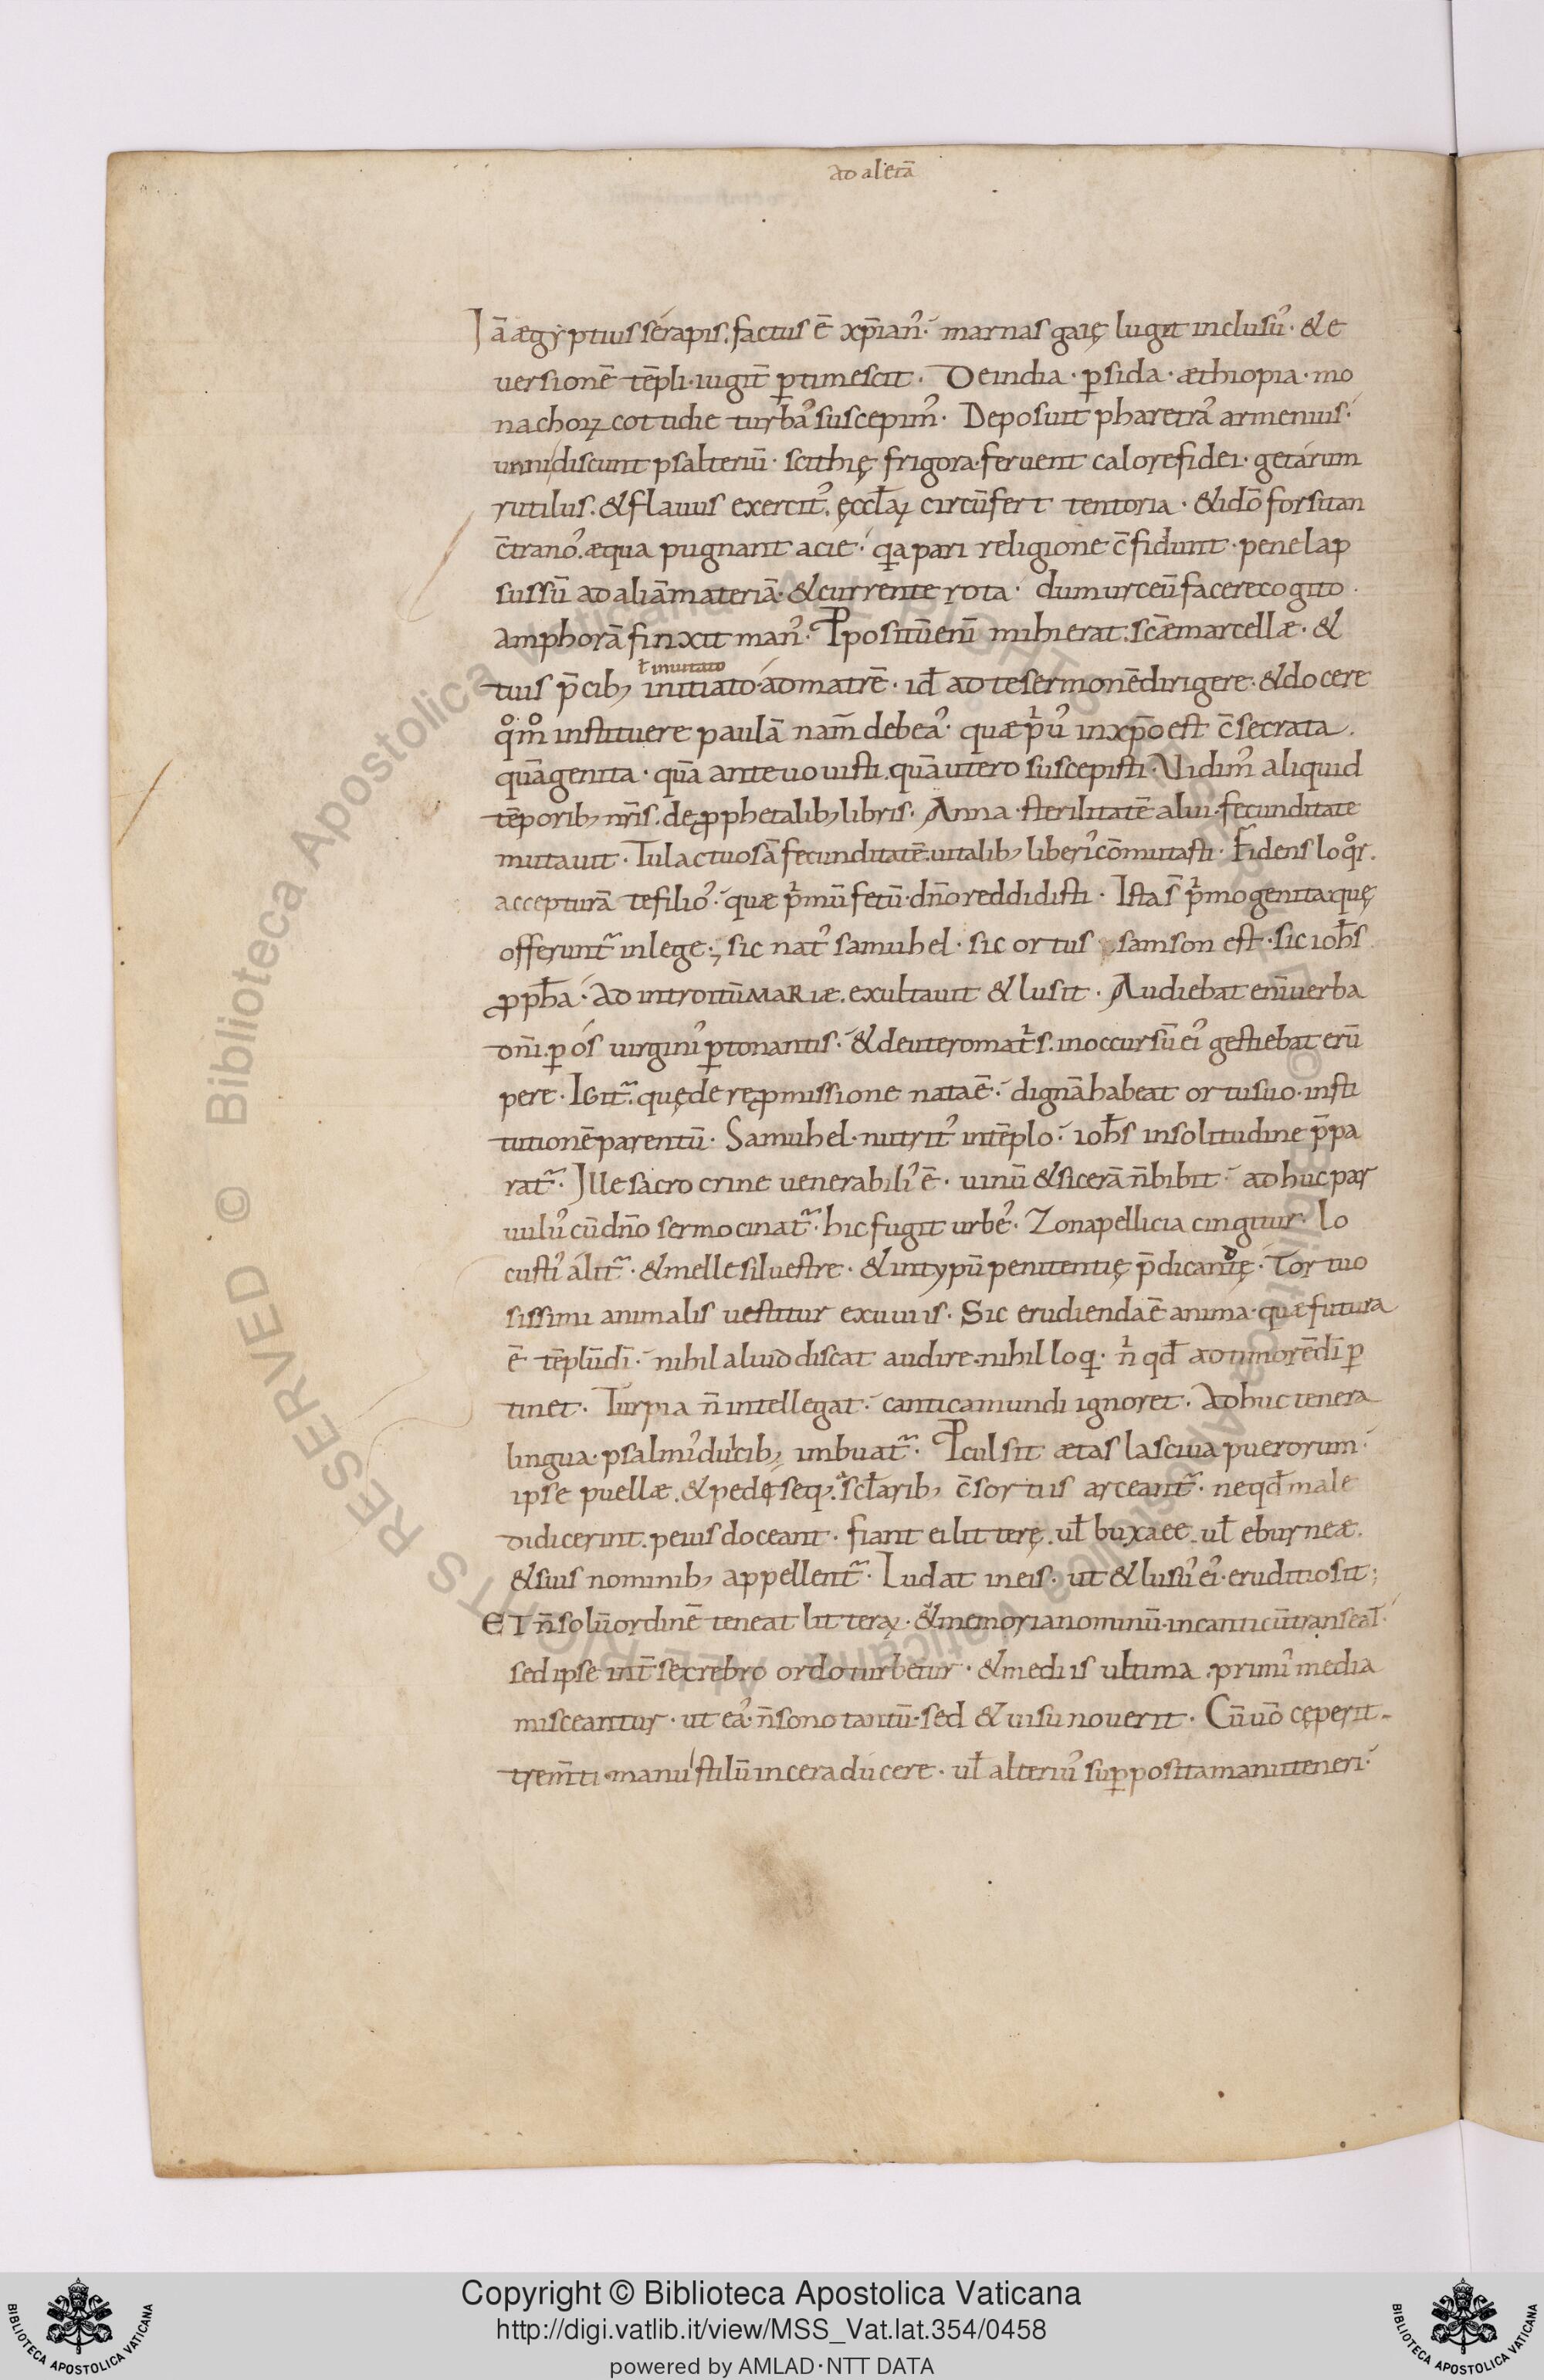 ad aletā
Iā ægẏptius serapis. factus ē xp̄ian᾽. marnas gaię lugit inclusu᾽. & e
uersionē tēpli. iugit̄ ꝑtimescit. De india. ꝑsida. æthiopia. mo
nachoꝝ cottidie turba᾽ suscepim᾽. Deposuit pharetra᾽ armenius.
unni discunt psalteriū. scithię frigora. feruent calore fidei. getarum
rutilus. & flauus exercit᾽. ęccƚaꝝ circūfert tentoria. & idō forsitan
c̄tra no᾽. æqua pugnant acie. qa pari religione c̄fidunt. pene lap
sus sū ad aliā materiā. & currente rota. dum urceū facere cogito.
amphorā finxit man᾽. P̄positū enī mihi erat. scǣ marcellæ. &
ƚ imutato
tuis p̄cib; initiato. ad matrē. id̄ ad te sermonē dirigere. & docere
qͦmͦ instituere paulā nam̄ debea᾽. quæ pͥu᾽ in xp̄o est c̄secrata.
quā genita. quā ante uouisti. quā utero suscepisti. Vidim᾽ aliquid
tēporib; nr̄is. de ꝓphetalib; libris. Anna. sterilitatē alui. fecunditate
mutauit. Tu luctuosā fecunditatē. uitalib; liberi᾽ cōmutasti. Fidens loqͦr.
accepturā te filio᾽. quæ pͥmū fetū. dn̄o reddidisti. Ista s̄ pͥmogenita quę
offerunt᷒ in lege. sic nat᾽ samuhel. sic ortus samson est. sic ioh̄s
ꝓph̄a. ad introitū MARIæ. exultauit & lusit. Audiebat enī uerba
dn̄i. ꝑ ós uirgini᾽ ꝑtonantis. & de utero matͥs. in occursū ei᾽ gestiebat erū
pere. IGIt᷒. quę de reꝓmissione nata ē. dignā habeat ortu suo. insti
tutionē parentū. Samuhel. nutrit᾽ in tēplo. ioh̄s in solitudine p̄pa
rat᷒. Ille sacro crine uenerabili᾽ ē. uinū & sicerā n̄ bibit. adhuc par
uulu᾽ cū dn̄o sermocinat᷒. hic fugit urbe᾽. Zona pellicia cingitur. lo
custi᾽ alit᷒. & melle siluestre. & in typū penitentię p̄dicandę. Tortuo
sissimi animalis uestitur exuuiis. Sic erudienda ē anima. quæ futura
ē tēplū dī. nihil aliud discat audire. nihil loqi. nͥ qd̄ ad timorē dī ꝑ
tinet. Turpia n̄ intellegat. cantica mundi ignoret. Adhuc tenera
lingua. psalmi᾽ dulcib; imbuat᷒. P̄cul sit ætas lasciua puerorum.
ipse puellæ. & pedęseqͣ. scƚarib; c̄sortiis arceant᷒. ne qd̄ male
didicerint. peius doceant. fiant ei litterę. uƚ buxaee. uƚ eburneæ.
& suis nominib; appellent᷒. Ludat in eis. ut & lusu᾽ ei᾽. eruditio sit;
ET n̄ solū ordinē teneat litteraꝝ. & memoria nominū. in canticū transeat.
sed ipse int̄ se crebro ordo turbetur. & mediis ultima. primi᾽ media
misceantur. ut ea᾽. n̄ sono tantū. sed & uisu nouerit. Cū uo᷎ cęperit
trem̄ti manu stilū in cera ducere. uƚ alteriu᾽ suꝑposita manu teneri.
Copyright © Biblioteca Apostolica Vaticana
http://digi.vatlib.it/view/MSS_Vat.lat.354/0458
powered by AMLAD·NTT DATA